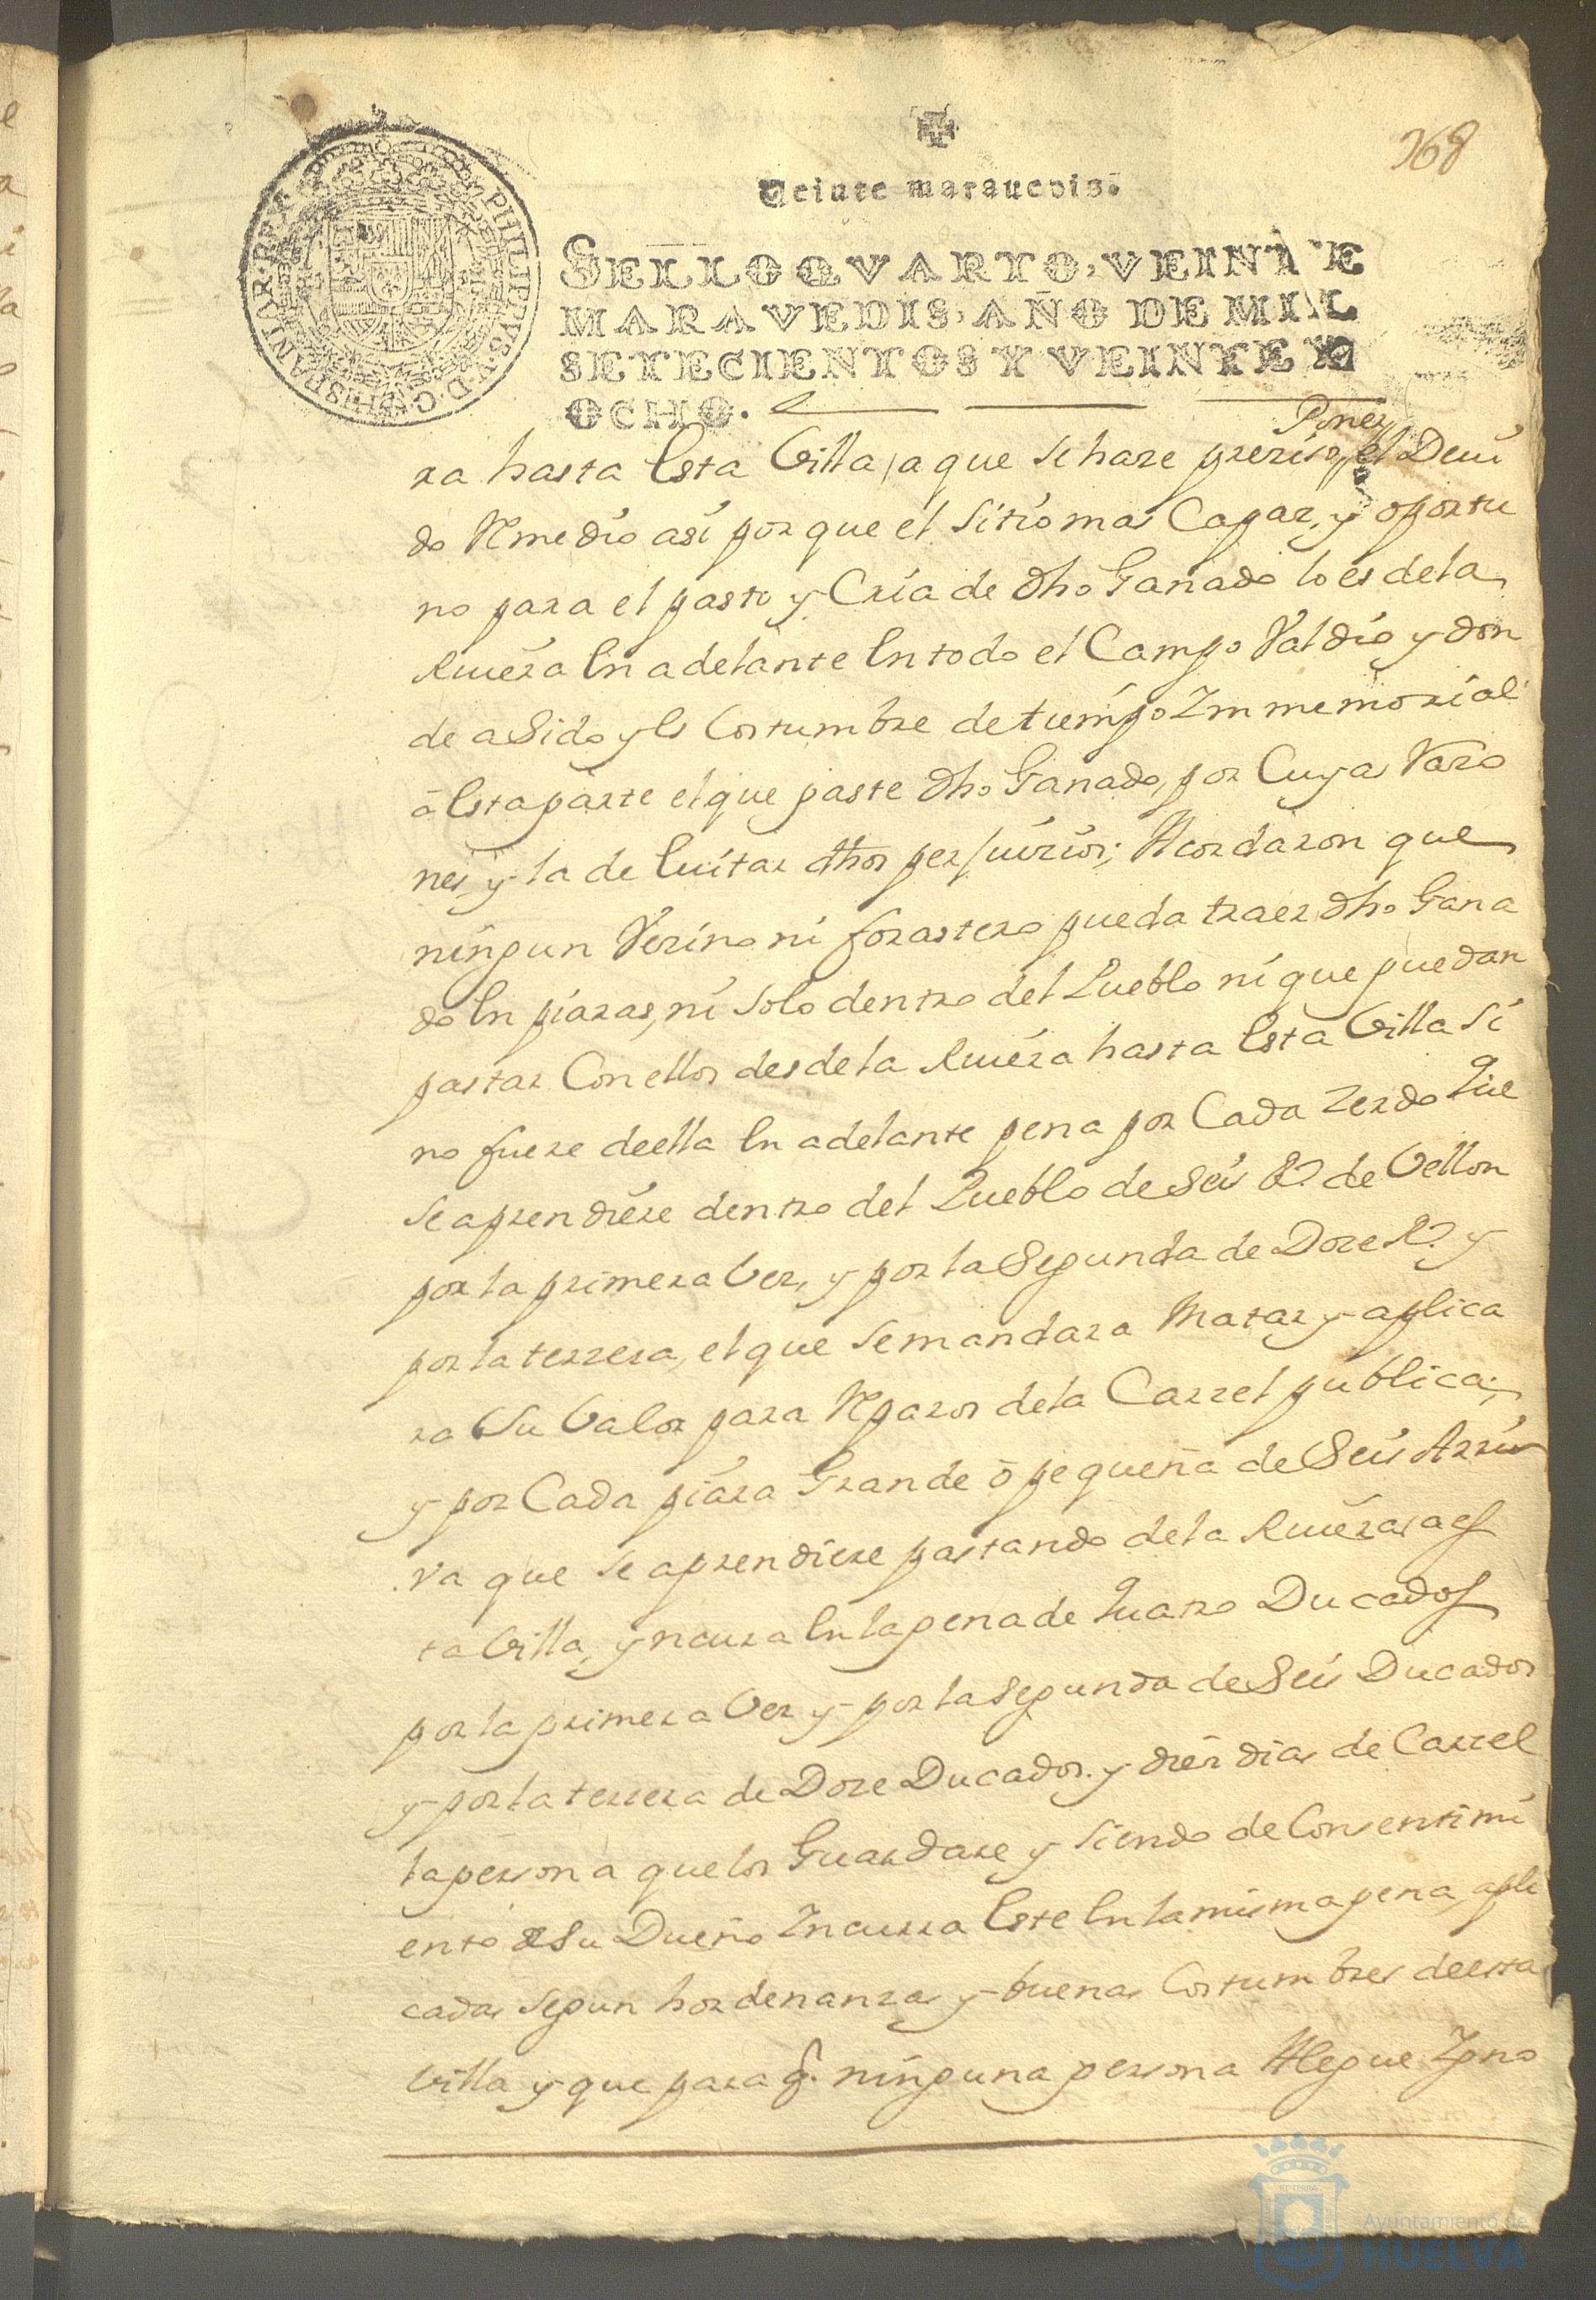 368
Veinte marauedis.
SELLO QVARTO, VEINTE
MARAVEDIS, AÑO DE MIL
SETECIENTOS Y VEINTE Y
OCHO.
PHILIPPVS V D G HISPANIAR REX
Poner
ra hasta esta Villa, a que se haze prezíso, el Deuí
do Remedío así por que el sitío mas Capaz, y oportu
no para el pasto y Cría de dho Ganado lo es de la
Riuéra en adelante en todo el Campo Valdío y don
de a Sido y es Costumbre de tiempo Immemoríal
â esta parte el que paste dho Ganado, por Cuyas Razo
nes, y la de euítar dhos perjuízíos; Acordaron que
níngun Vezíno ní forastero pueda traer dho Gana
do en píaras, ní Solo dentro del Pueblo ní que puedan
pastar Con ellos desde la Riuéra hasta esta Villa Sí
no fuere de ella en adelante pena por Cada Zerdo que
se aprendíére dentro del Pueblo de Seís Rs. de Vellon
por la prímera Vez, y por la Segunda de Doze Rs. y
por la terzera, el que se mandara Matar y aplica
ra Su Valor para Reparos de la Carzel publica;
y por Cada píara Grande ô pequeña de Seís Arrí
va que se aprendiere pastando de la Riuéra, a es
ta Villa, yncurra en la pena de quatro Ducados
por la primera Vez y por la Segunda de Seís Ducados
y por la terzera de Doze Ducados. y díéz días de Carzel
la persona que los Guardare y síendo de Consentimí
ento de Su Dueño Incurra este en la mísma pena, aplí
cadas segun hordenanzas y buenas Costumbres de esta
Villa y que para q. nínguna persona Alegue Igno
Ayuntamiento de
HUELVA